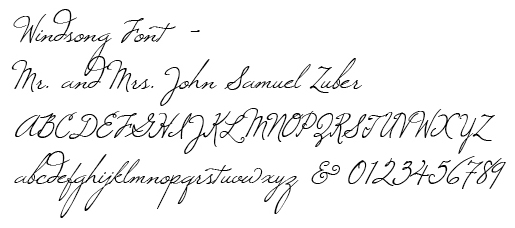 Windsong Font -
Mr. and Mrs. John Samuel Zuber
ABCDEFGHIJKLMNOPQRSTUVWXYZ
abcdefghijklmnopqrstuvwxyz & 0123456789